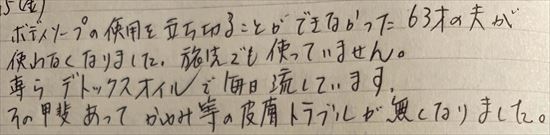 5(金)
ボディソープの使用を立ち切ることができなかった63才の夫が
使わなくなりました。施設でも使っていません。
専らデトックスオイルで毎日流しています。
その甲斐あってかゆみ等の皮膚トラブルが無くなりました。